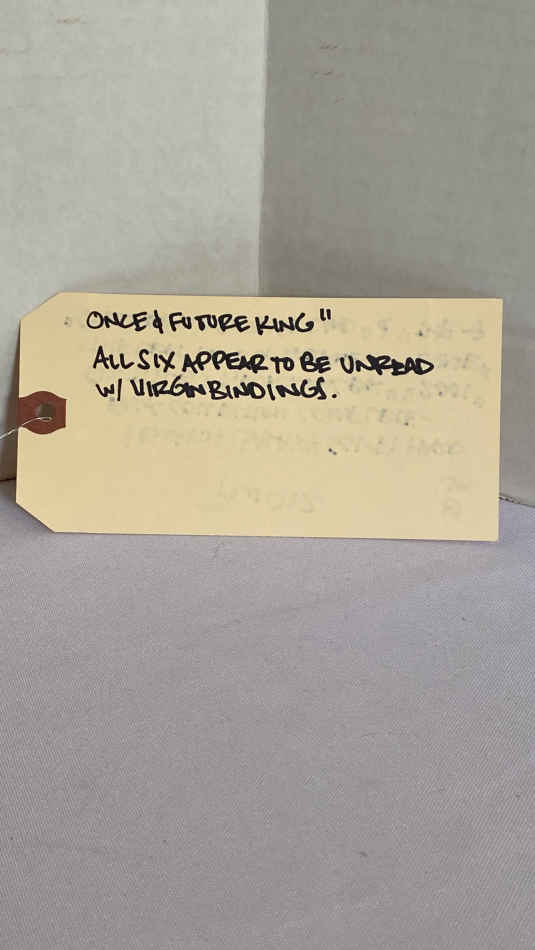 ONCE & FUTURE KING"
ALL SIX APPEAR TO BE UNREAD
W/ VIRGIN BINDINGS.